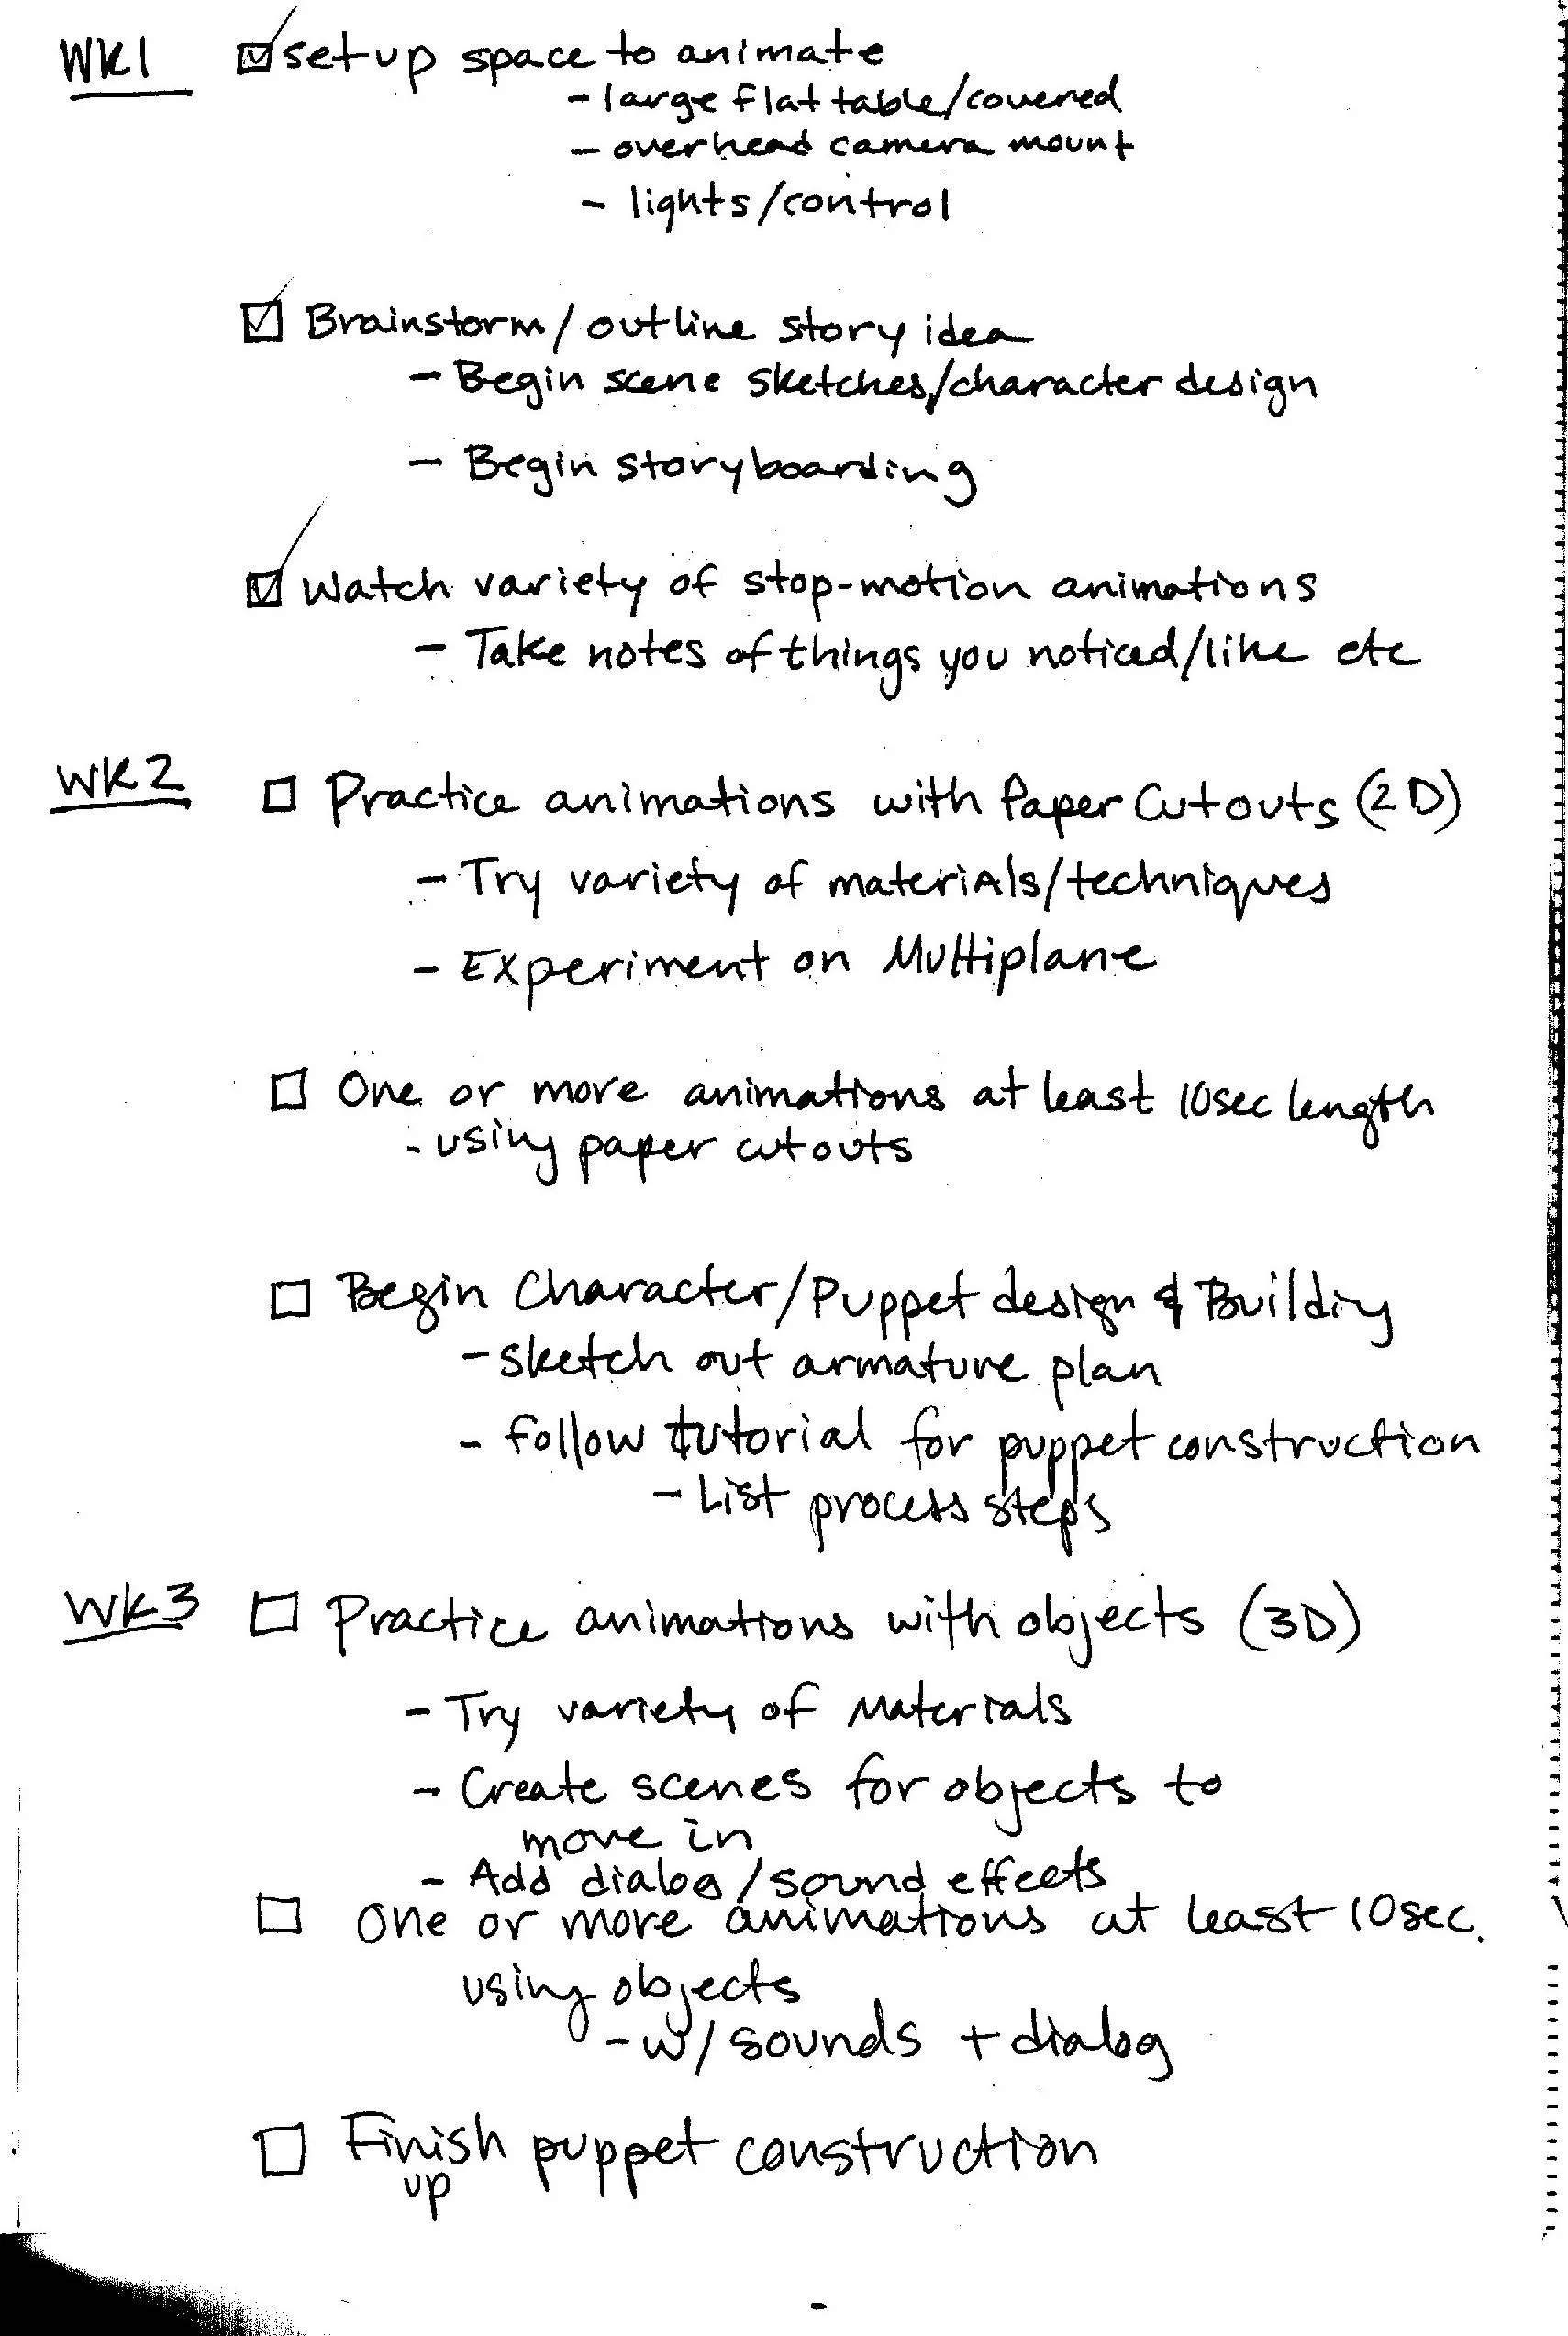 WK1 ☑ setup space to animate
- large flat table/covered
- overhead camera mount
- lights/control
☑ Brainstorm/outline story idea
- Begin scene sketches/character design
- Begin storyboarding
☑ Watch variety of stop-motion animations
- Take notes of things you noticed/like etc
WK2 ☐ Practice animations with Paper Cutouts (2D)
- Try variety of materials/techniques
- Experiment on Multiplane
☐ One or more animations at least 10sec length
- using paper cutouts
☐ Begin Character/Puppet design & Building
- sketch out armature plan
- follow tutorial for puppet construction
- List process steps
WK3 ☐ Practice animations with objects (3D)
- Try variety of Materials
- Create scenes for objects to
move in
- Add dialog/sound effects
☐ One or more animations at least 10sec.
using objects
- w/ sounds + dialog
☐ Finish puppet construction
up